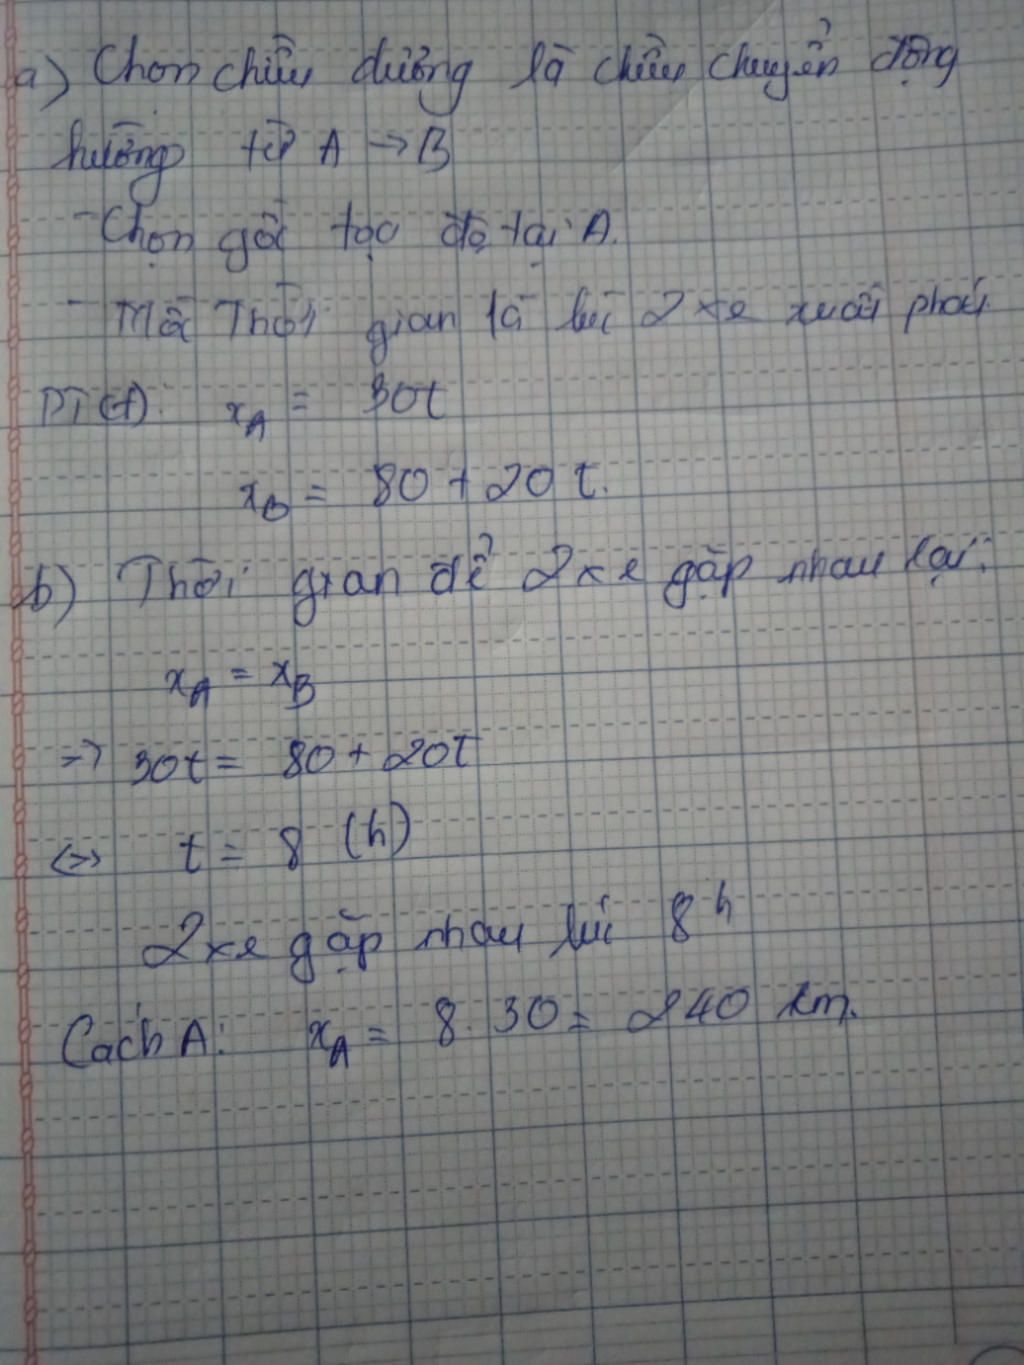 a) Chọn chiều dương là chiều chuyển động
hướng từ A → B
- Chọn gốc tọa độ tại A.
- Mốc Thời gian là lúc 2 xe xuất phát
PT(đ): xA = 30t
xB = 80 + 20t.
b) Thời gian để 2 xe gặp nhau lại:
xA = xB
=> 30t = 80 + 20t
<=> t = 8 (h)
2 xe gặp nhau lúc 8h
Cách A: xA = 8.30 = 240 km.